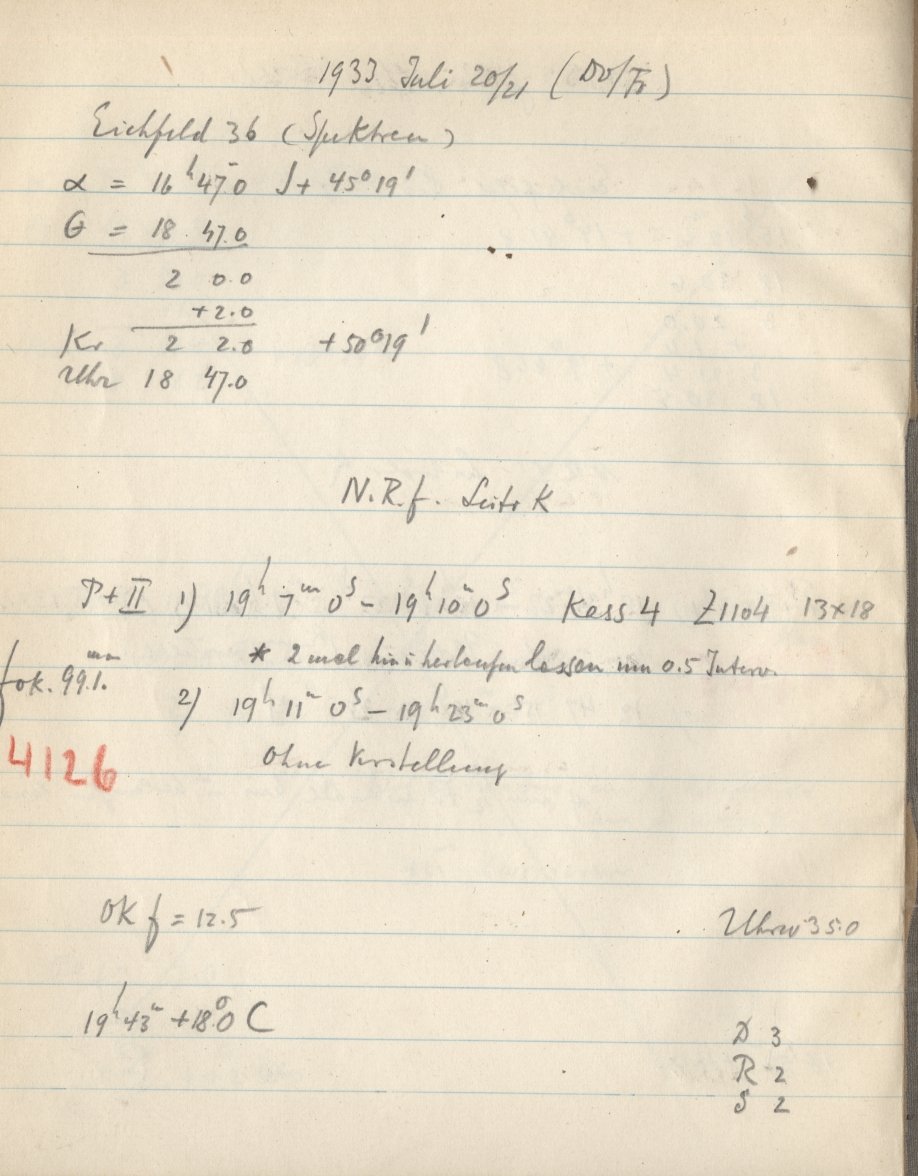 1933 Juli 20/21 (Do/Fr)
Eichfeld 36 (Spektren)
α = 16ʰ 47ᵐ.0 δ + 45° 19'
θ = 18 47.0
2 0.0
+2.0
Kr 2 2.0 +50° 19'
Uhr 18 47.0
N.R.f. Seite K
P+II 1) 19ʰ 7ᵐ 0ˢ – 19ʰ 10ᵐ 0ˢ Kass 4 Z1104 13×18
* 2 mal hin u herlaufen lassen um 0.5 Interv.
fok. 99.1. ᵐᵐ
2) 19ʰ 11ᵐ 0ˢ – 19ʰ 23ᵐ 0ˢ
4126
Ohne Verstellung
OK f = 12.5
Uhrw 350
19ʰ 43ᵐ +18°.0 C
D 3
R 2
S 2